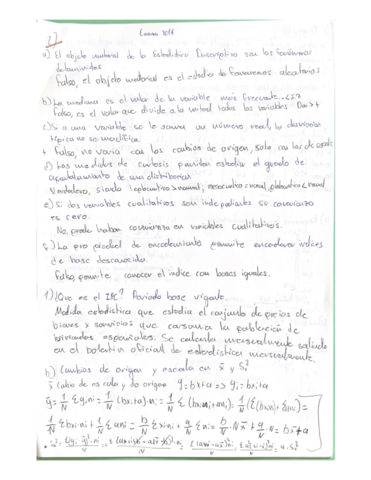 Examen 2017
2)
a) El objeto material de la Estadística Descriptiva son los fenómenos
deterministas
Falso, el objeto material es el estudio de fenómenos aleatorios
b) La mediana es el valor de la variable más frecuente
Falso, es el valor que divide a la mitad todas las variables
c) Si a una variable se le suma un número, real, la desviación
típica no se modifica.
Falso, no varía con los cambios de origen, solo con los de escala
d) Las medidas de curtosis permiten estudiar el grado de
apuntalamiento de una distribución
Verdadero, siendo leptocurtico > normal; mesocurtico = normal, platocurtico < normal
e) Si dos variables cualitativas son independientes su covarianza
es cero.
No, puede haber covarianza en variables cualitativas.
f) La propiedad de encadenamiento permite encadenar indices
de base desconocida.
Falso, permite conocer el indice con bases iguales.
1) ¿Que es el IPC? Periodo base vigente.
Medida estadística que estudia el conjunto de precios de
bienes y servicios que consume la población de
viviendas españolas. Se calcula mensualmente saliendo
en el boletín oficial de estadistica mensualmente.
h) Cambios de origen y escala en x̄ y S²
x̄ Cambio de escala y de origen y = bx+a => yi = bxi+a
ȳ = 1/N Σyi ni = 1/N Σ(bxi+a)·ni = 1/N Σ(bxini+ani) = 1/N (Σ(bxini)+Σani) =
1/N Σbxini + 1/N Σani = b/N Σxini + a/N Σni = b/N · Nx̄ + a/N · N = bx̄+a